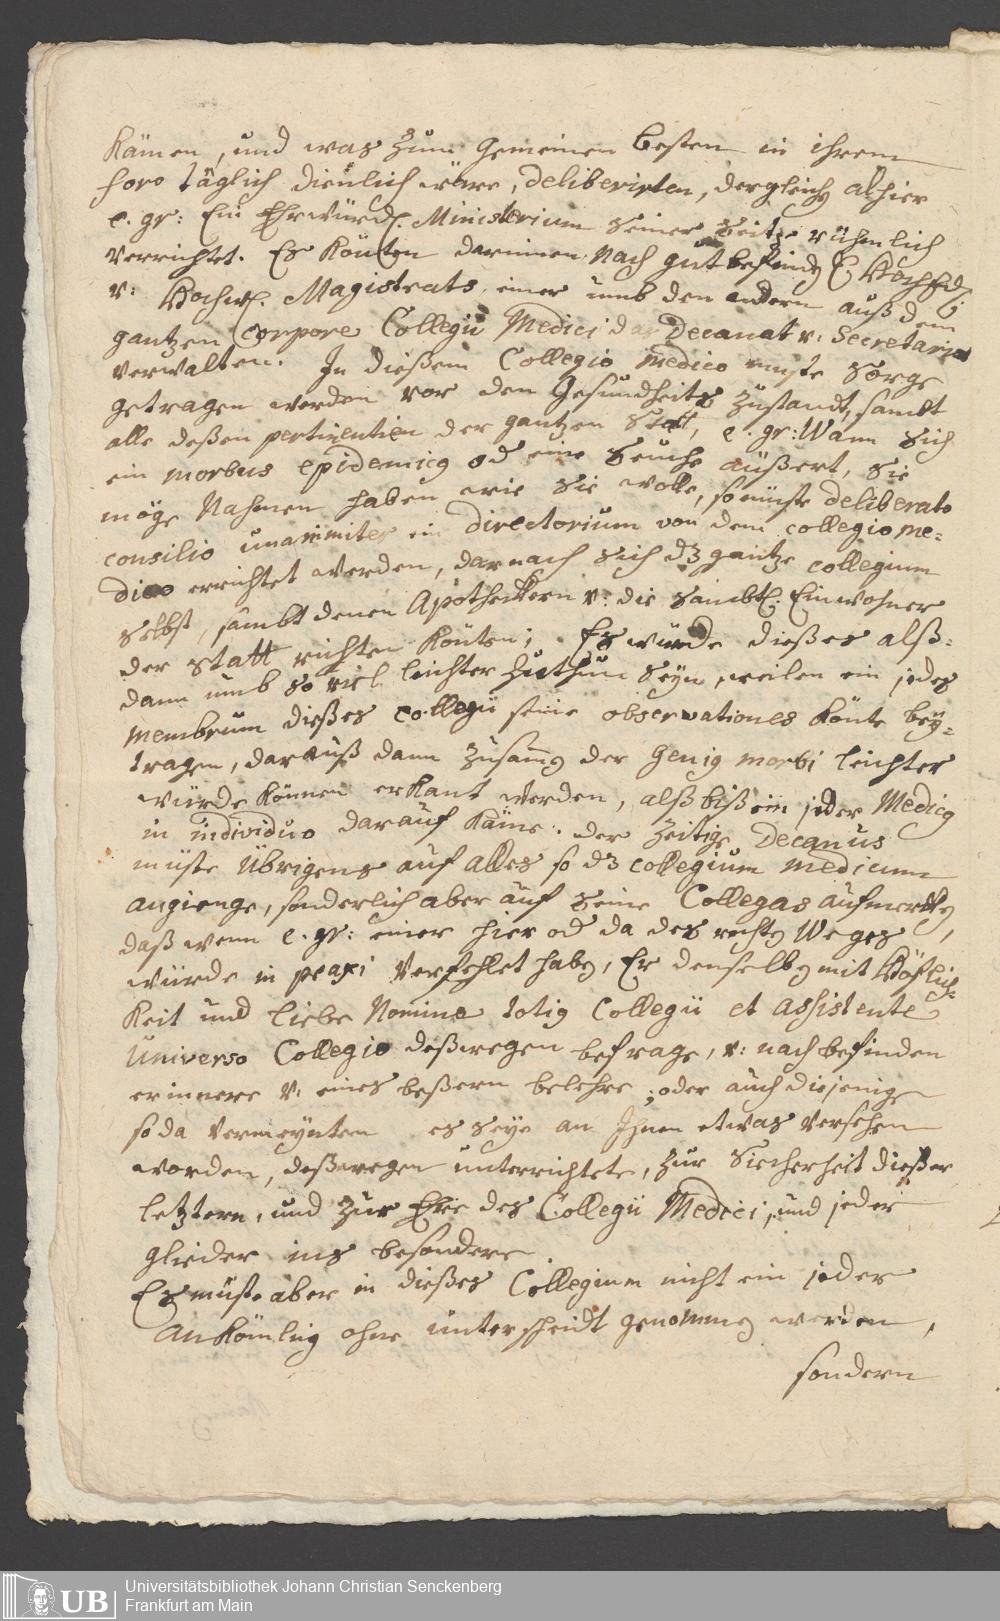 kämen, und was zum gemeinen besten in ihrem
foro täglich dienlich wäre, deliberirten, dergleichen alhier
e. gr: Ein Ehrwürd. Ministerium seiner Seits rühmlich
verrichtet. Es könten darinnen nach gutbefinden E HochEdl.
v: Hochw. Magistrats einer umb den andern auß dem
gantzen Corpore Collegii Medici das Decanat v: Secretariat
verwalten. In dießem Collegio medico müste Sorge
getragen werden vor den Gesundheits Zustandt, sambt
alle deßen pertinentien der gantzen Statt, e. gr: Wann sich
ein morbus epidemicus od eine Seuche äußert, sie
möge Nahmen haben wie sie wolle, so müste deliberato
consilio unanimiter ein directorium von dem collegio me=
dico errichtet werden, darnach sich dz gantze collegium
selbst, sambt denen Apotheckern v: die sambtl. Einwohner
der statt richten könten; Es würde dießes alß=
dann umb so viel leichter zuthun seyn, weilen ein jedes
membrum dießes collegii seine observationes könte bey=
tragen, darauß dann zusammen der Genius morbi leichter
würde können erkant werden, alß biß ein jeder Medicus
in individuo darauf käme. der zeitige Decanus
müste übrigens auf alles so dz collegium medicum
angienge, sonderlich aber auf seine Collegas aufmercken,
daß wenn e. gr: einer hier od da des rechten Weges
würde in praxi verfehlet haben, Er denselben mit Höflich=
keit und Liebe Nomine totius Collegii et assistente
Universo Collegio deßwegen befrage, v: nach befinden
erinnere v. eines beßern belehre; oder auch diejenige
so da vermeynten es seye an Ihnen etwas versehen
worden, deßwegen unterrichtete, zur Sicherheit dießer
letztern, und zur Ehre des Collegii Medici, und jeder
glieder ins besondere.
Es müste aber in dießes Collegium nicht ein jeder
Ankömling ohne unterscheidt genommen werden,
sondern
UB Universitätsbibliothek Johann Christian Senckenberg
Frankfurt am Main